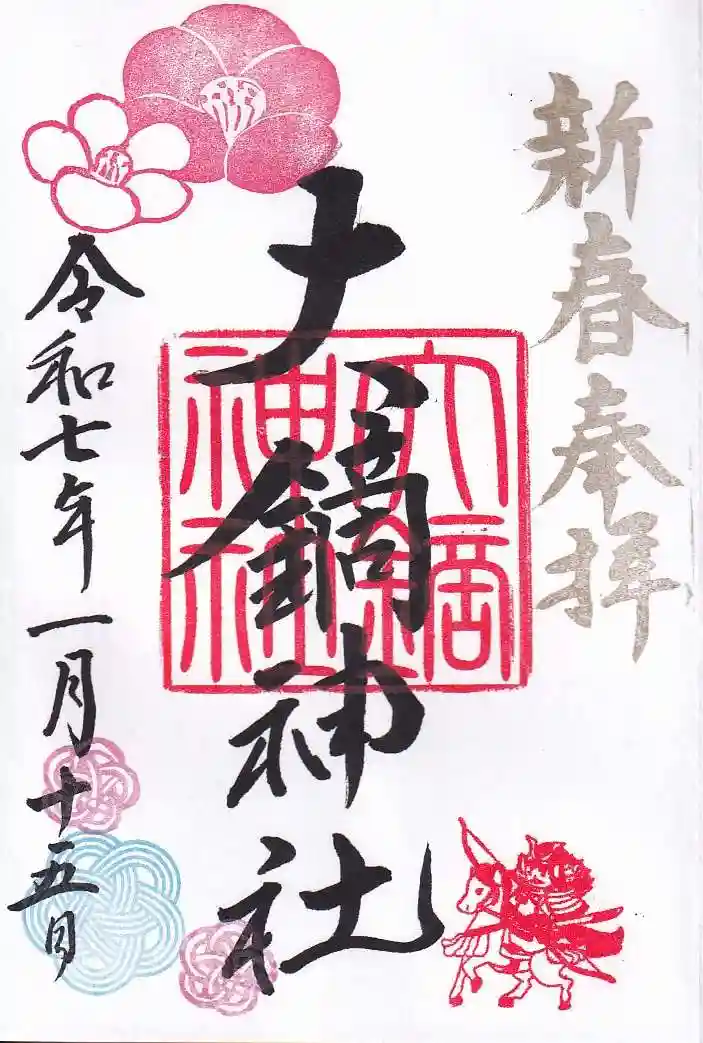 新春奉拝
大鏑神社
大鏑
神社
令和七年一月十五日